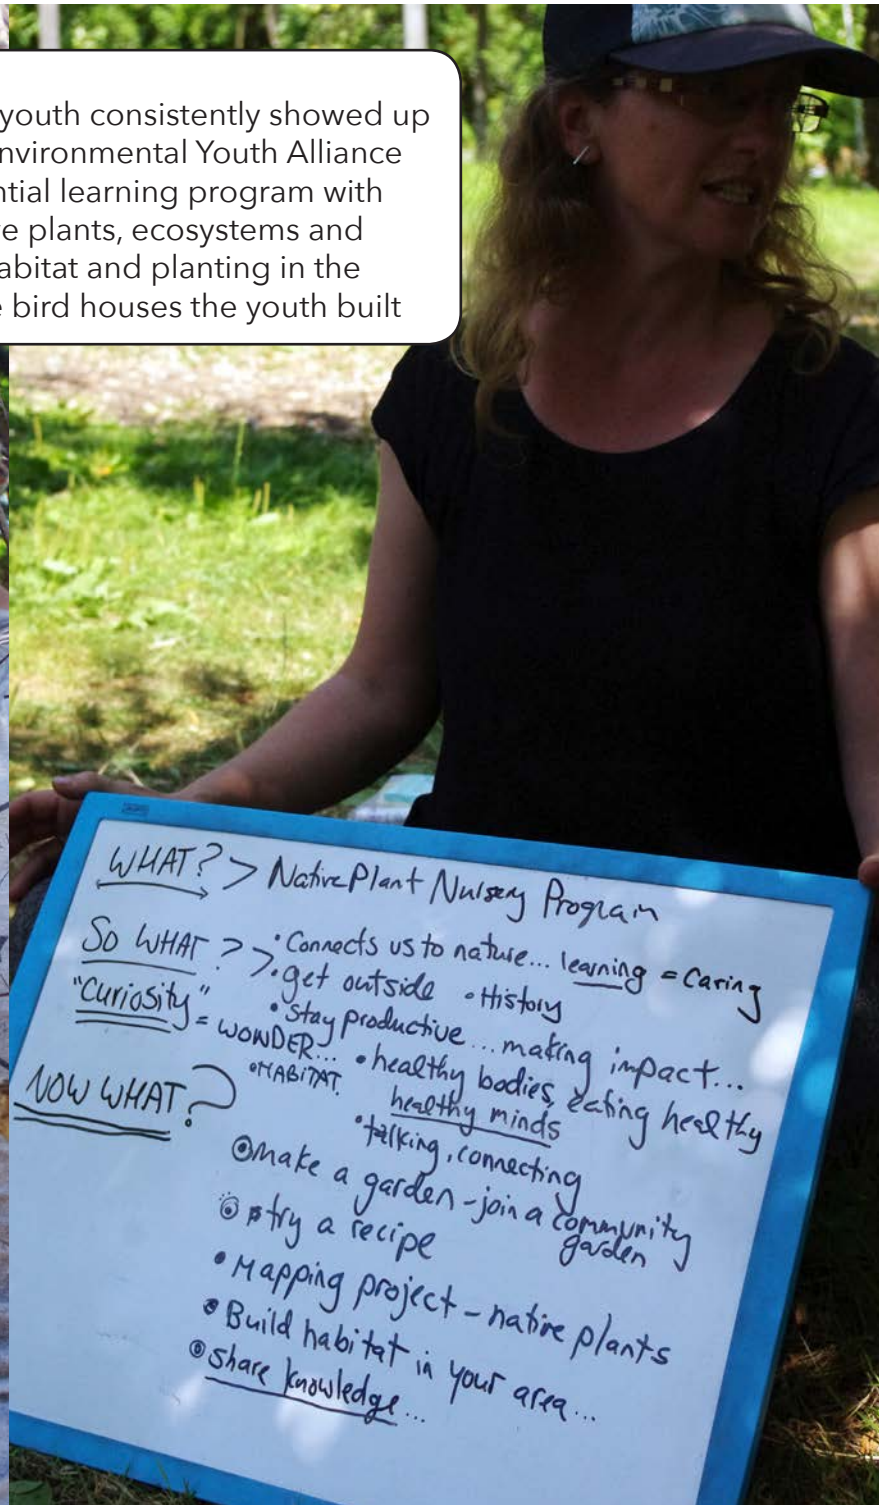 youth consistently showed up
nvironmental Youth Alliance
ntial learning program with
e plants, ecosystems and
abitat and planting in the
e bird houses the youth built
WHAT? > Native Plant Nursery Program
SO WHAT? > • Connects us to nature... learning = Caring
• get outside • History
"Curiosity" = WONDER... • Stay productive... making impact...
• HABITAT. • healthy bodies, eating healthy
healthy minds
• talking, connecting
NOW WHAT?
make a garden - join a community
garden
try a recipe
• Mapping project - native plants
• Build habitat in your area...
share knowledge...